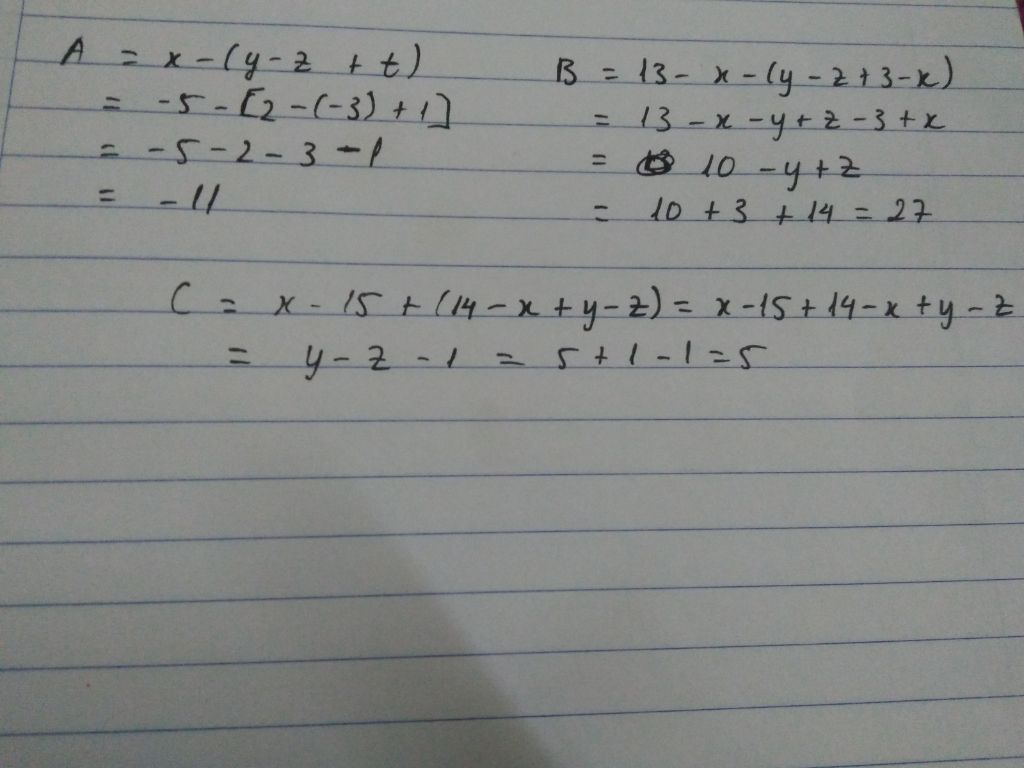 A = x - (y - z + t)
= -5 - [2 - (-3) + 1]
= -5 - 2 - 3 - 1
= -11
B = 13 - x - (y - z + 3 - x)
= 13 - x - y + z - 3 + x
= 10 - y + z
= 10 + 3 + 14 = 27
C = x - 15 + (14 - x + y - z) = x - 15 + 14 - x + y - z
= y - z - 1 = 5 + 1 - 1 = 5